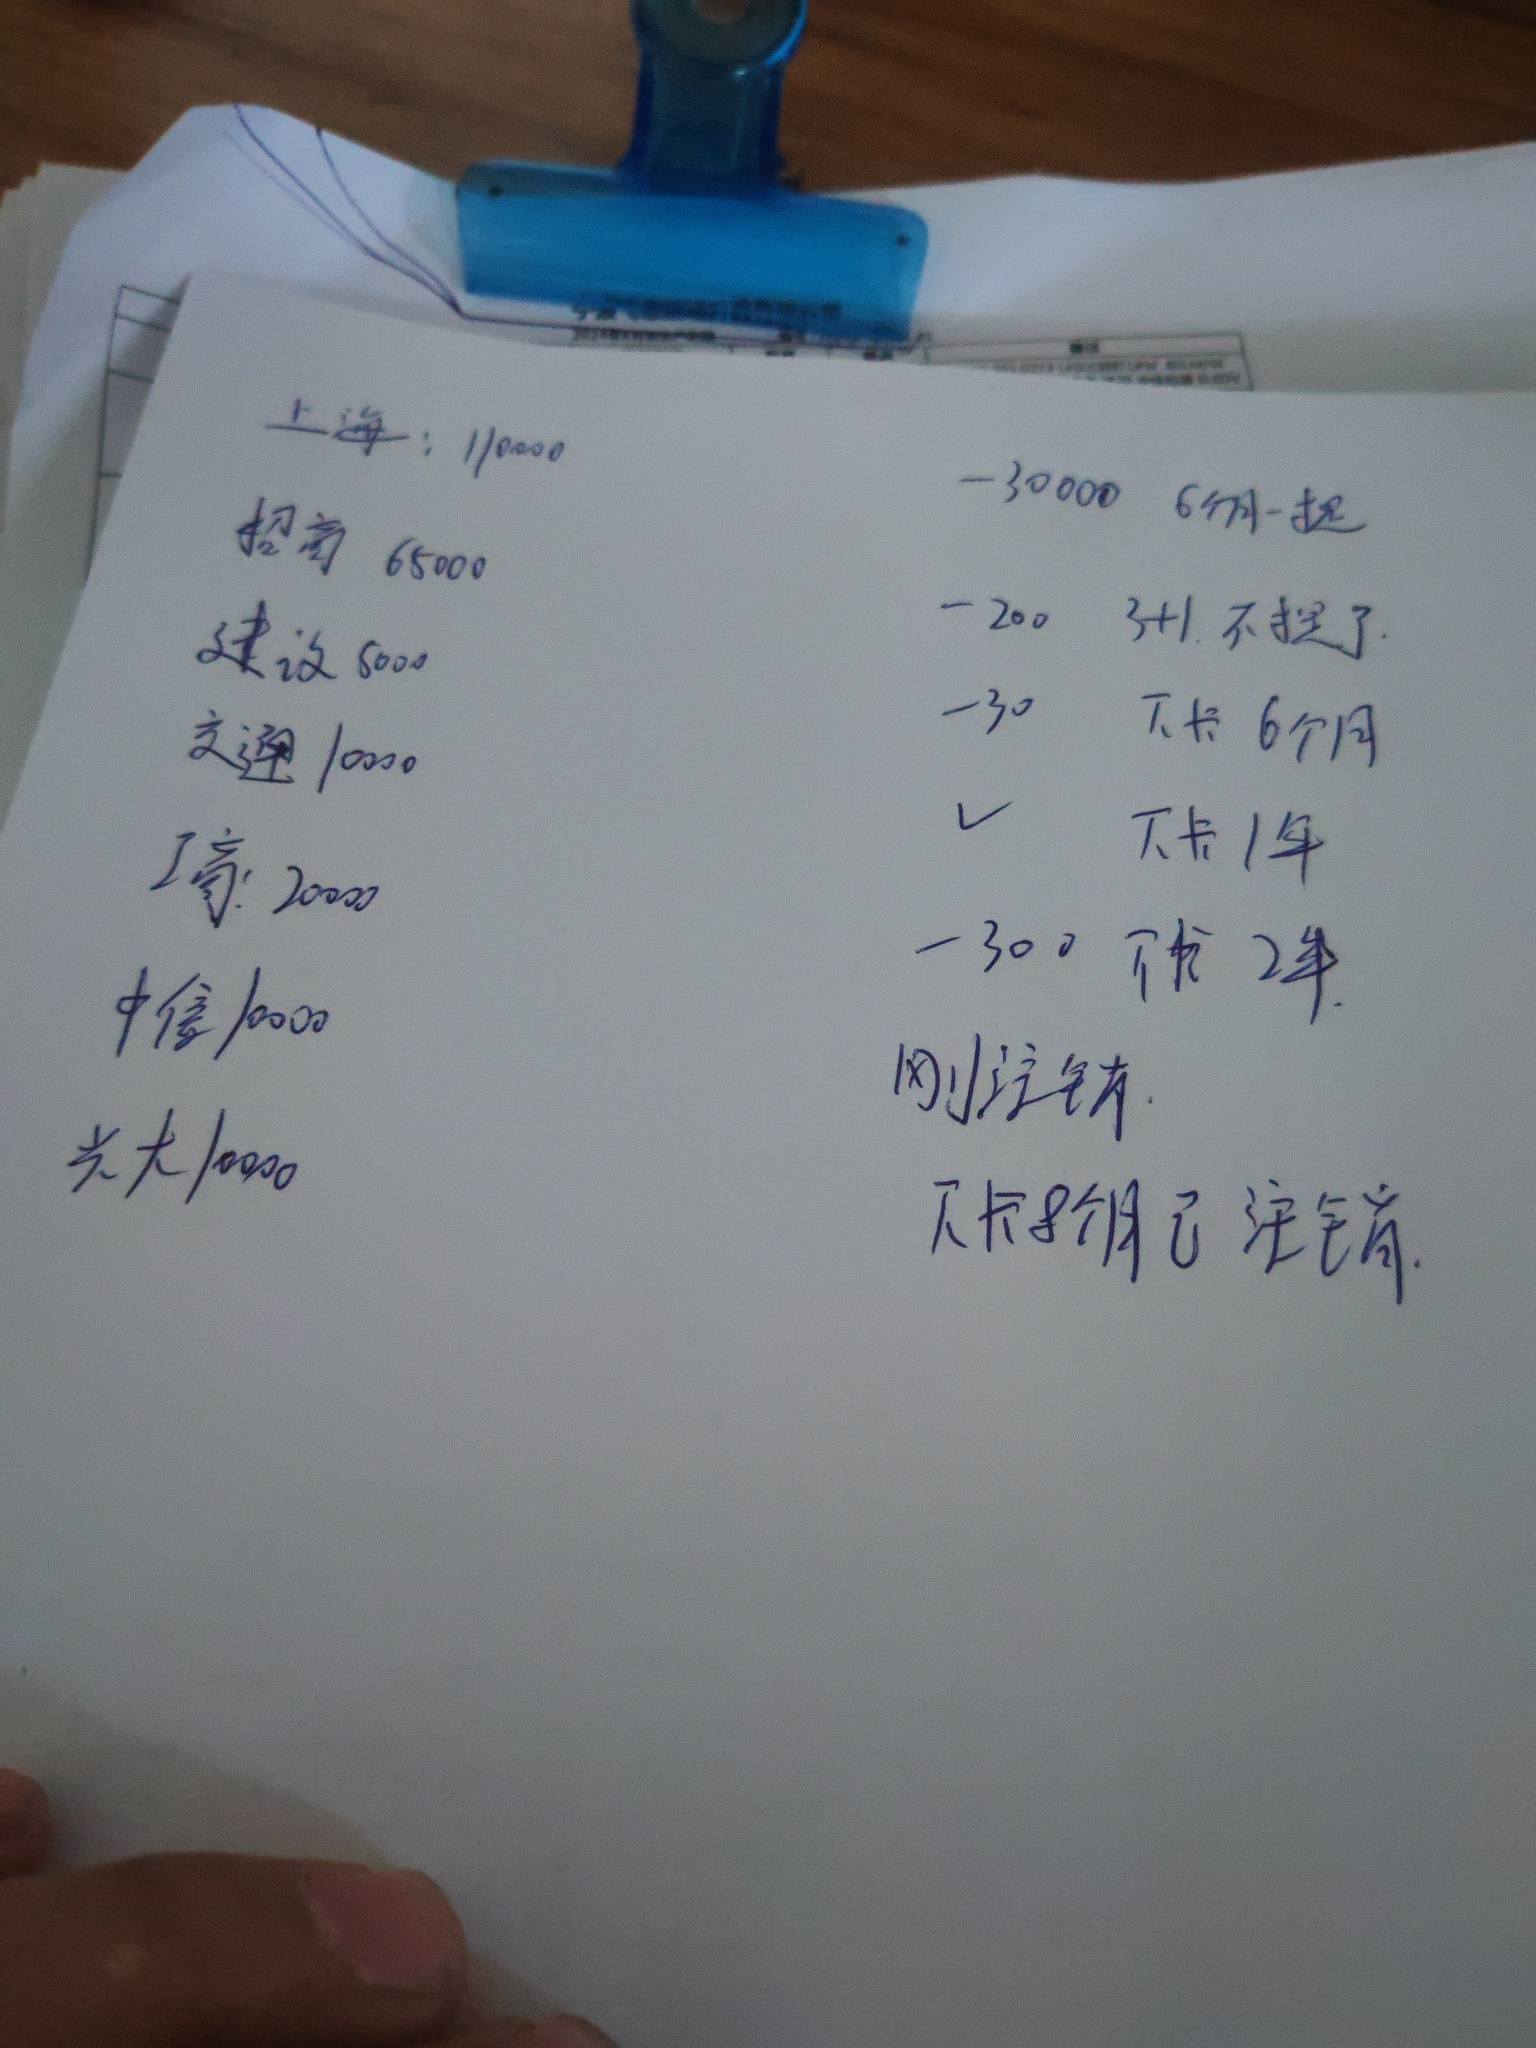 上海：110000 -30000 6个月一提
招商 65000 -200 3+1.不提了.
建设 5000 -30 下卡 6个月
交通 10000 ✓ 下卡 1年
工商：20000 -300 下卡 2年.
中信 10000 刚注销.
光大 10000 下卡8个月已注销.